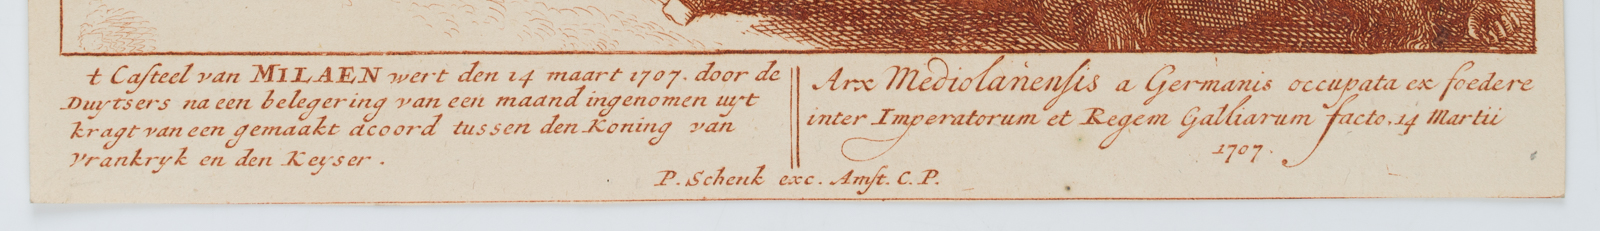 t Casteel van MILAEN wert den 14 maart 1707. door de
Duytsers na een belegering van een maand ingenomen uyt
kragt van een gemaakt acoord tussen den Koning van
Vrankryk en den Keyser.
Arx Mediolanensis a Germanis occupata ex foedere
inter Imperatorum et Regem Galliarum facto, 14 Martii
1707.
P. Schenk exc. Amst. C. P.